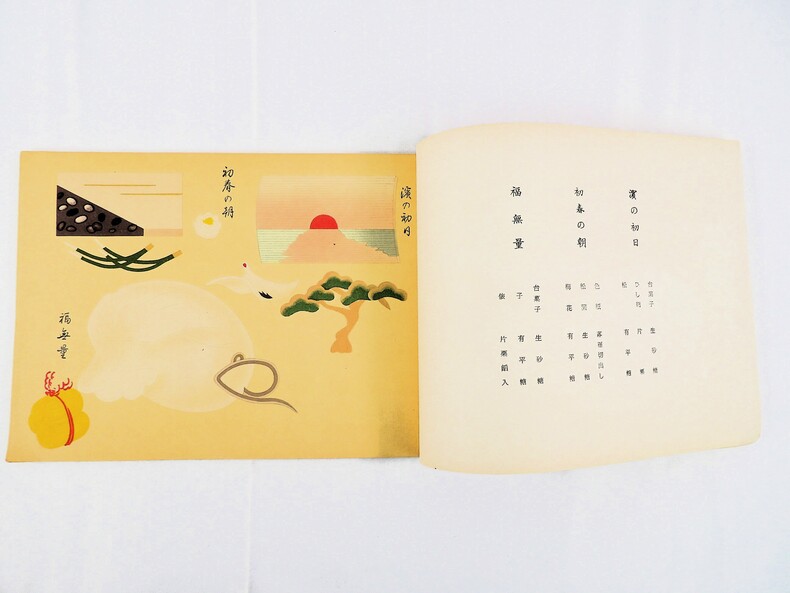 濱の初日
台菓子 生砂糖
片栗
松 有平糖
初春の朝
色紙 切出し
生砂糖
梅花 有平糖
福無量
台菓子 生砂糖
子 有平糖
俵 片栗餡入
濱の初日
初春の朝
福無量